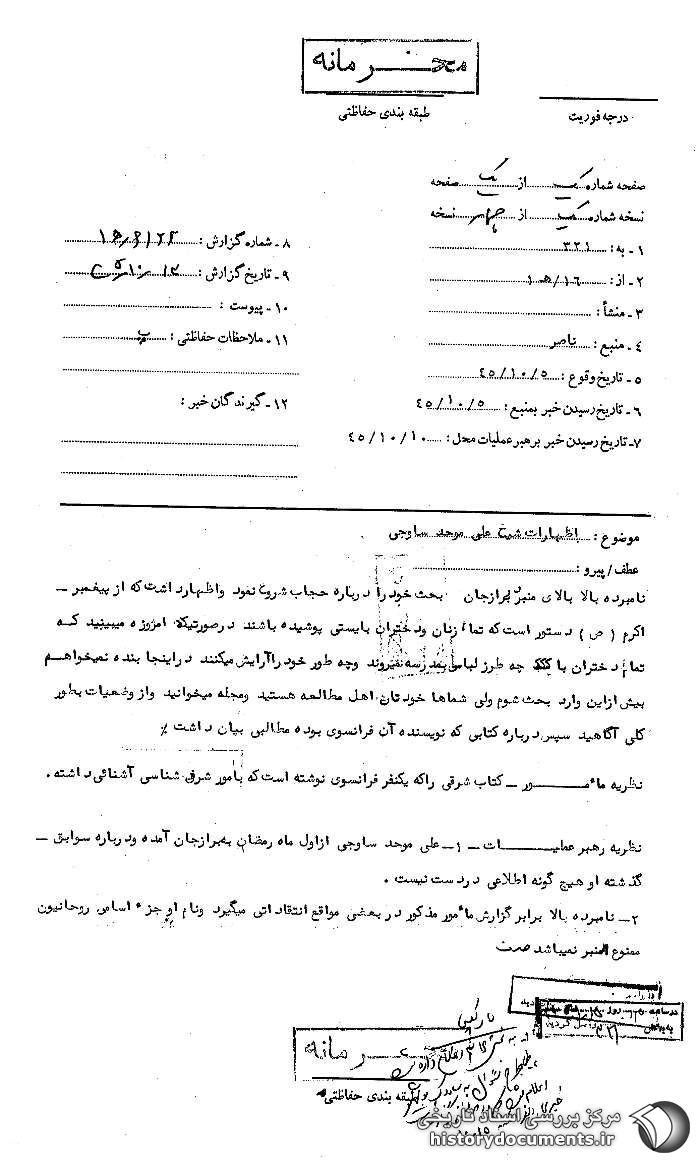 محرمانه
طبقه بندی حفاظتی
درجه فوریت
صفحه شماره یک از یک صفحه
نسخه شماره یک از چهار نسخه
۱ - به : ۳۲۱
۲ - از : ۱۶/ﻫ ۱
۳ - منشأ :
۴ - منبع : ناصر
۵ - تاریخ وقوع : ۴۵/۱۰/۵
۶ - تاریخ رسیدن خبر بمنبع : ۴۵/۱۰/۵
۷ - تاریخ رسیدن خبر برهبر عملیات محل : ۴۵/۱۰/۱۰
۸ - شماره گزارش :
۹ - تاریخ گزارش :
۱۰ - پیوست :
۱۱ - ملاحظات حفاظتی :
۱۲ - گیرندگان خبر :
موضوع : اظهارات شیخ علی موحد ساوجی
عطف / پیرو :
نامبرده بالا بالای منبر برازجان بحث خود را درباره حجاب شروع نمود واظهار داشت که از پیغمبر –
اکرم (ص) دستور است که تمام زنان ودختران بایستی پوشیده باشند درصورتیکه امروزه میبینید کـه
تمام دختران با چه طرز لباسی بمدرسه میروند وچه طور خود را آرایش میکنند دراینجا بنده نمیخواهـم
بیش ازاین وارد بحث شوم ولی شماها خودتان اهل مطالعه هستید ومجله میخوانید واز وضعیات بطور
کلی آگاهید سپس درباره کتابی که نویسنده آن فرانسوی بوده مطالبی بیان داشت ٪
نظریه مأمـور – کتاب شرقی را که یکنفر فرانسوی نوشته است که بامور شرق شناسی آشنائی داشته .
نظریه رهبر عملیـات – ۱ – علی موحد ساوجی ازاول ماه رمضان به برازجان آمده ودرباره سوابق –
گذشته او هیچ گونه اطلاعی در دست نیست .
۲ – نامبرده بالا برابر گزارش مأمور مذکور در بعضی مواقع انتقاداتی میگیرد ونام او جزء اسامی روحانیون
ممنوع المنبر نمیباشد
محرمانه
طبقه بندی حفاظتی
مرکز بررسی اسناد تاریخی
historydocuments.ir